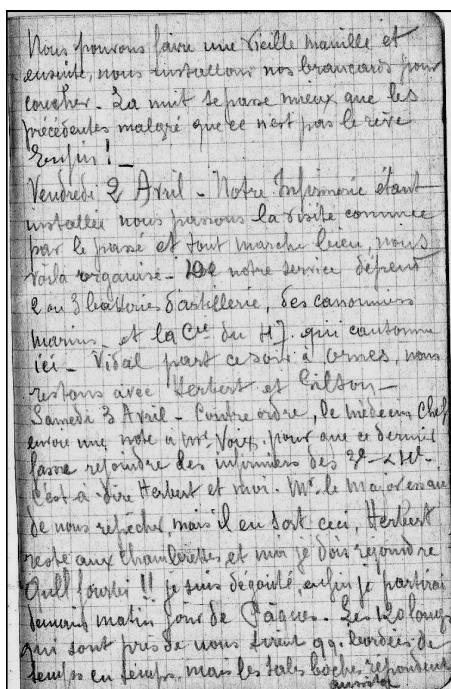 Nous pouvons faire une vieille manille et
ensuite, nous installons nos brancards pour
coucher. La nuit se passe mieux que les
précédentes malgré que ce n'est pas le rêve
Enfin! _
Vendredi 2 Avril - Notre Infirmerie étant
installée nous passons la visite comme
par le passé et tout marche bien, nous
voila organisé - De notre service dépend
2 ou 3 batteries d'artillerie, des canonniers
marins et la Cie du qui cantonne
ici - Vidal part ce soir à Ornes, nous
restons avec Herbert et Gilson -
Samedi 3 Avril - Contre ordre, le médecin Chef
envoie une note à Mr. Voix pour que ce dernier
fasse rejoindre des infirmiers des
C'est à dire Herbert et moi. Mr. le Major essaie
de nous repêcher, mais il en sort ceci, Herbert
reste aux Chambrettes et moi je dois rejoindre
fourbi!! je suis dégouté, enfin je partirai
demain matin jour de Pâques. Les 120 longs
qui sont près de nous tirent qq. bordées de
temps en temps, mais les sales boches répondent
aussitôt